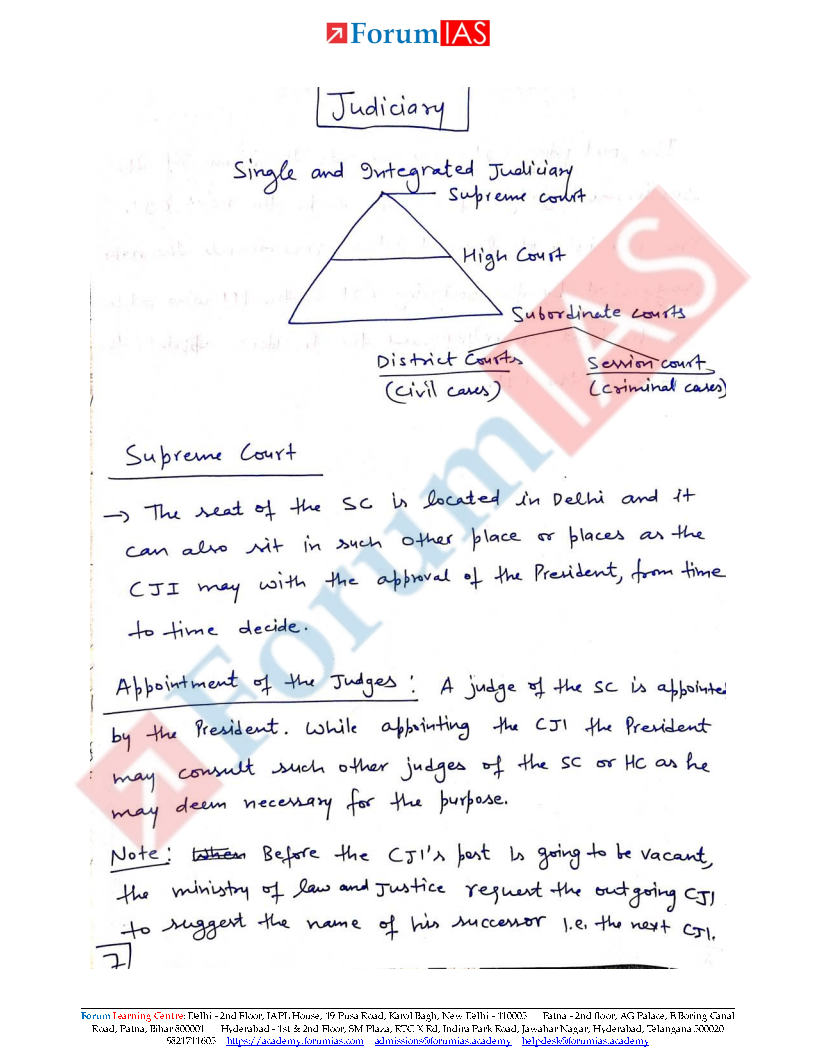 ForumIAS
Judiciary
Single and Integrated Judiciary
Supreme court
High Court
Subordinate courts
District Courts
(Civil cases)
Session court
(Criminal cases)
Supreme Court
→ The seat of the SC is located in Delhi and it
can also sit in such other place or places as the
CJI may with the approval of the President, from time
to time decide.
Appointment of the Judges: A judge of the SC is appointed
by the President. While appointing the CJI the President
may consult such other judges of the SC or HC as he
may deem necessary for the purpose.
Note: When Before the CJI's post is going to be vacant,
the ministry of law and Justice request the outgoing CJI
to suggest the name of his successor i.e. the next CJI.
7
ForumIAS
Forum Learning Centre: Delhi - 2nd Floor, IAPL House, 19 Pusa Road, Karol Bagh, New Delhi - 110005 Patna - 2nd floor, AG Palace, E Boring Canal
Road, Patna, Bihar 800001 Hyderabad - 1st & 2nd Floor, SM Plaza, RTC X Rd, Indira Park Road, Jawahar Nagar, Hyderabad, Telangana 500020
9821711605 https://academy.forumias.com admissions@forumias.academy helpdesk@forumias.academy